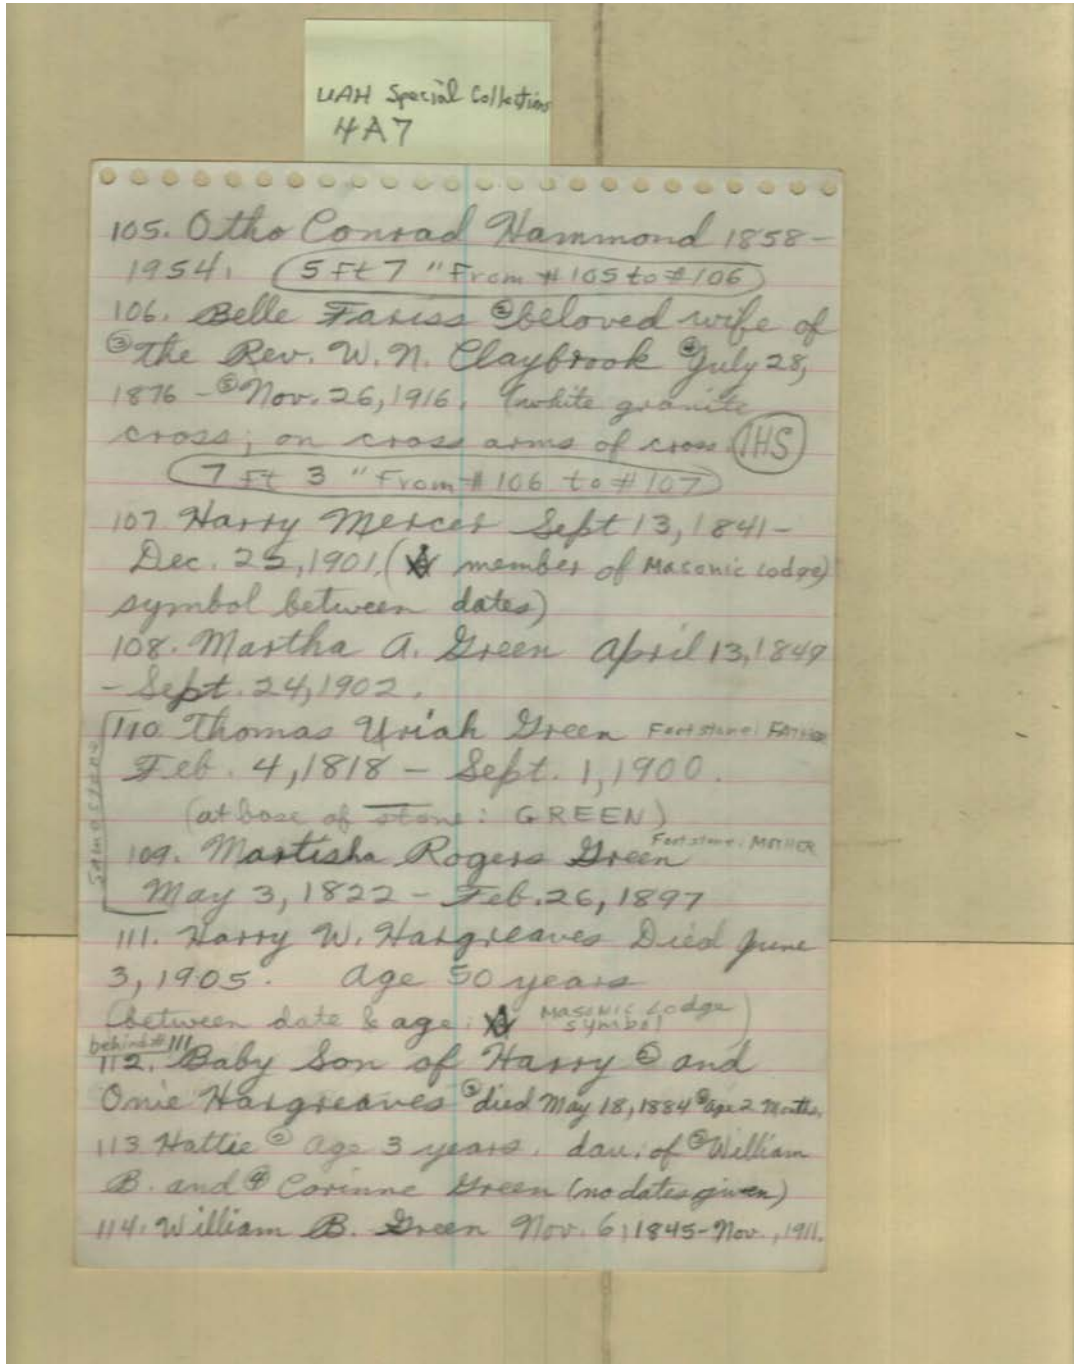 UAH Special Collections
4A7
105. Otho Conrad Hammond 1858-
1954. (5 Ft 7 " From # 105 to # 106)
106. Belle Fariss ②beloved wife of
③the Rev. W. N. Claybrook ④July 28,
1876 - ⑤Nov. 26, 1916. (white granite
cross; on cross arms of cross IHS
(7 Ft 3 " From # 106 to # 107)
107 Harry Mercer Sept 13, 1841-
Dec. 22, 1901. ( member of Masonic Lodge)
symbol between dates)
108. Martha A. Green April 13, 1849
- Sept. 24, 1902.
Same stone
110. Thomas Uriah Green Footstone: FATHER
Feb. 4, 1818 - Sept. 1, 1900.
(at base of stone: GREEN)
109. Martisha Rogers Green Footstone: MOTHER
May 3, 1822 - Feb. 26, 1897
111. Harry W. Hargreaves Died June
3, 1905. Age 50 years
(between date & age: Masonic Lodge
symbol)
behind # 111
112. Baby Son of Harry ② and
Onie Hargreaves ③died May 18, 1884 age 2 months.
113 Hattie ② Age 3 years. dau. of ③William
B. and ④ Corinne Green (no dates given)
114. William B. Green Nov. 6, 1845-Nov. , 1911.